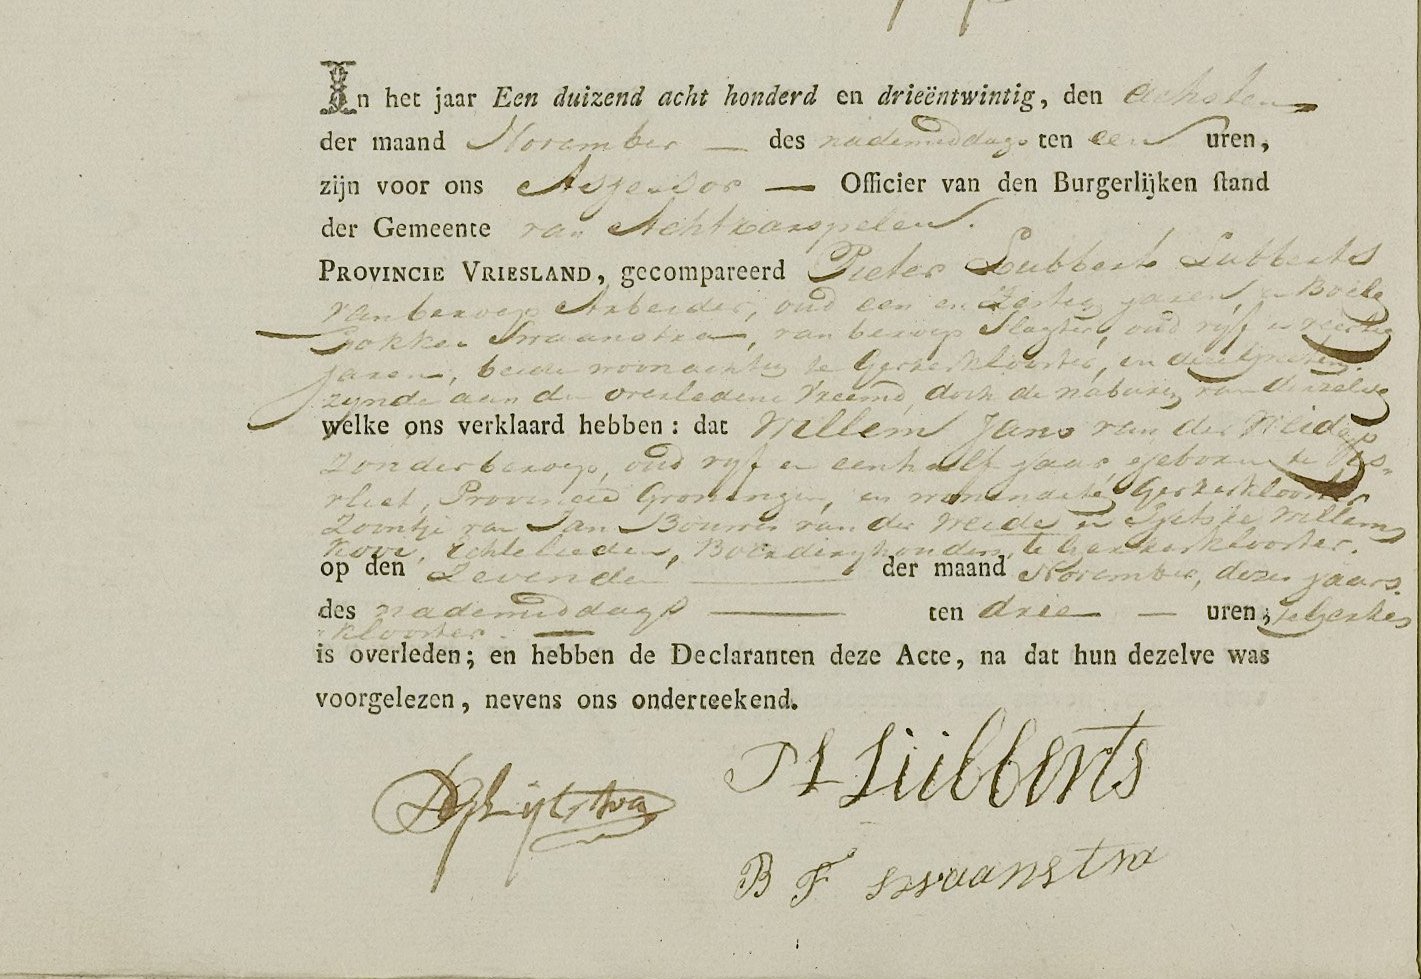 In het jaar Een duizend acht honderd en drieëntwintig, den achsten
der maand November — des nademiddags ten een uren,
zijn voor ons Assessor — Officier van den Burgerlijken stand
der Gemeente van Achtkarspelen.
PROVINCIE VRIESLAND, gecompareerd Pieter Lubberts Lubberts
van beroep Arbeider, oud een en zestig jaren, en Boele
Fokkes Swaanstra, van beroep Slagter, oud vyf en veertig
jaren, beide woonachtig te Gerkesklooster, en
zynde aan den overledene Vreemd, doch de naburen van denzelve
welke ons verklaard hebben: dat Willem Jans van der Meide
Zonder beroep, oud vyf en een half jaar, geboren te Vis-
vliet, Provincie Groningen, en woonachtig Gerkesklooster
Zoontje van Jan Bouwes van der Meide en Sjetske Willems
Echtelieden, te Gerkesklooster.
op den Zevenden — der maand November, dezes jaars.
des nademiddags — ten drie — uren; te Gerkes
klooster. —
is overleden; en hebben de Declaranten deze Acte, na dat hun dezelve was
voorgelezen, nevens ons onderteekend.
P L Lübberts
B F swaanstra